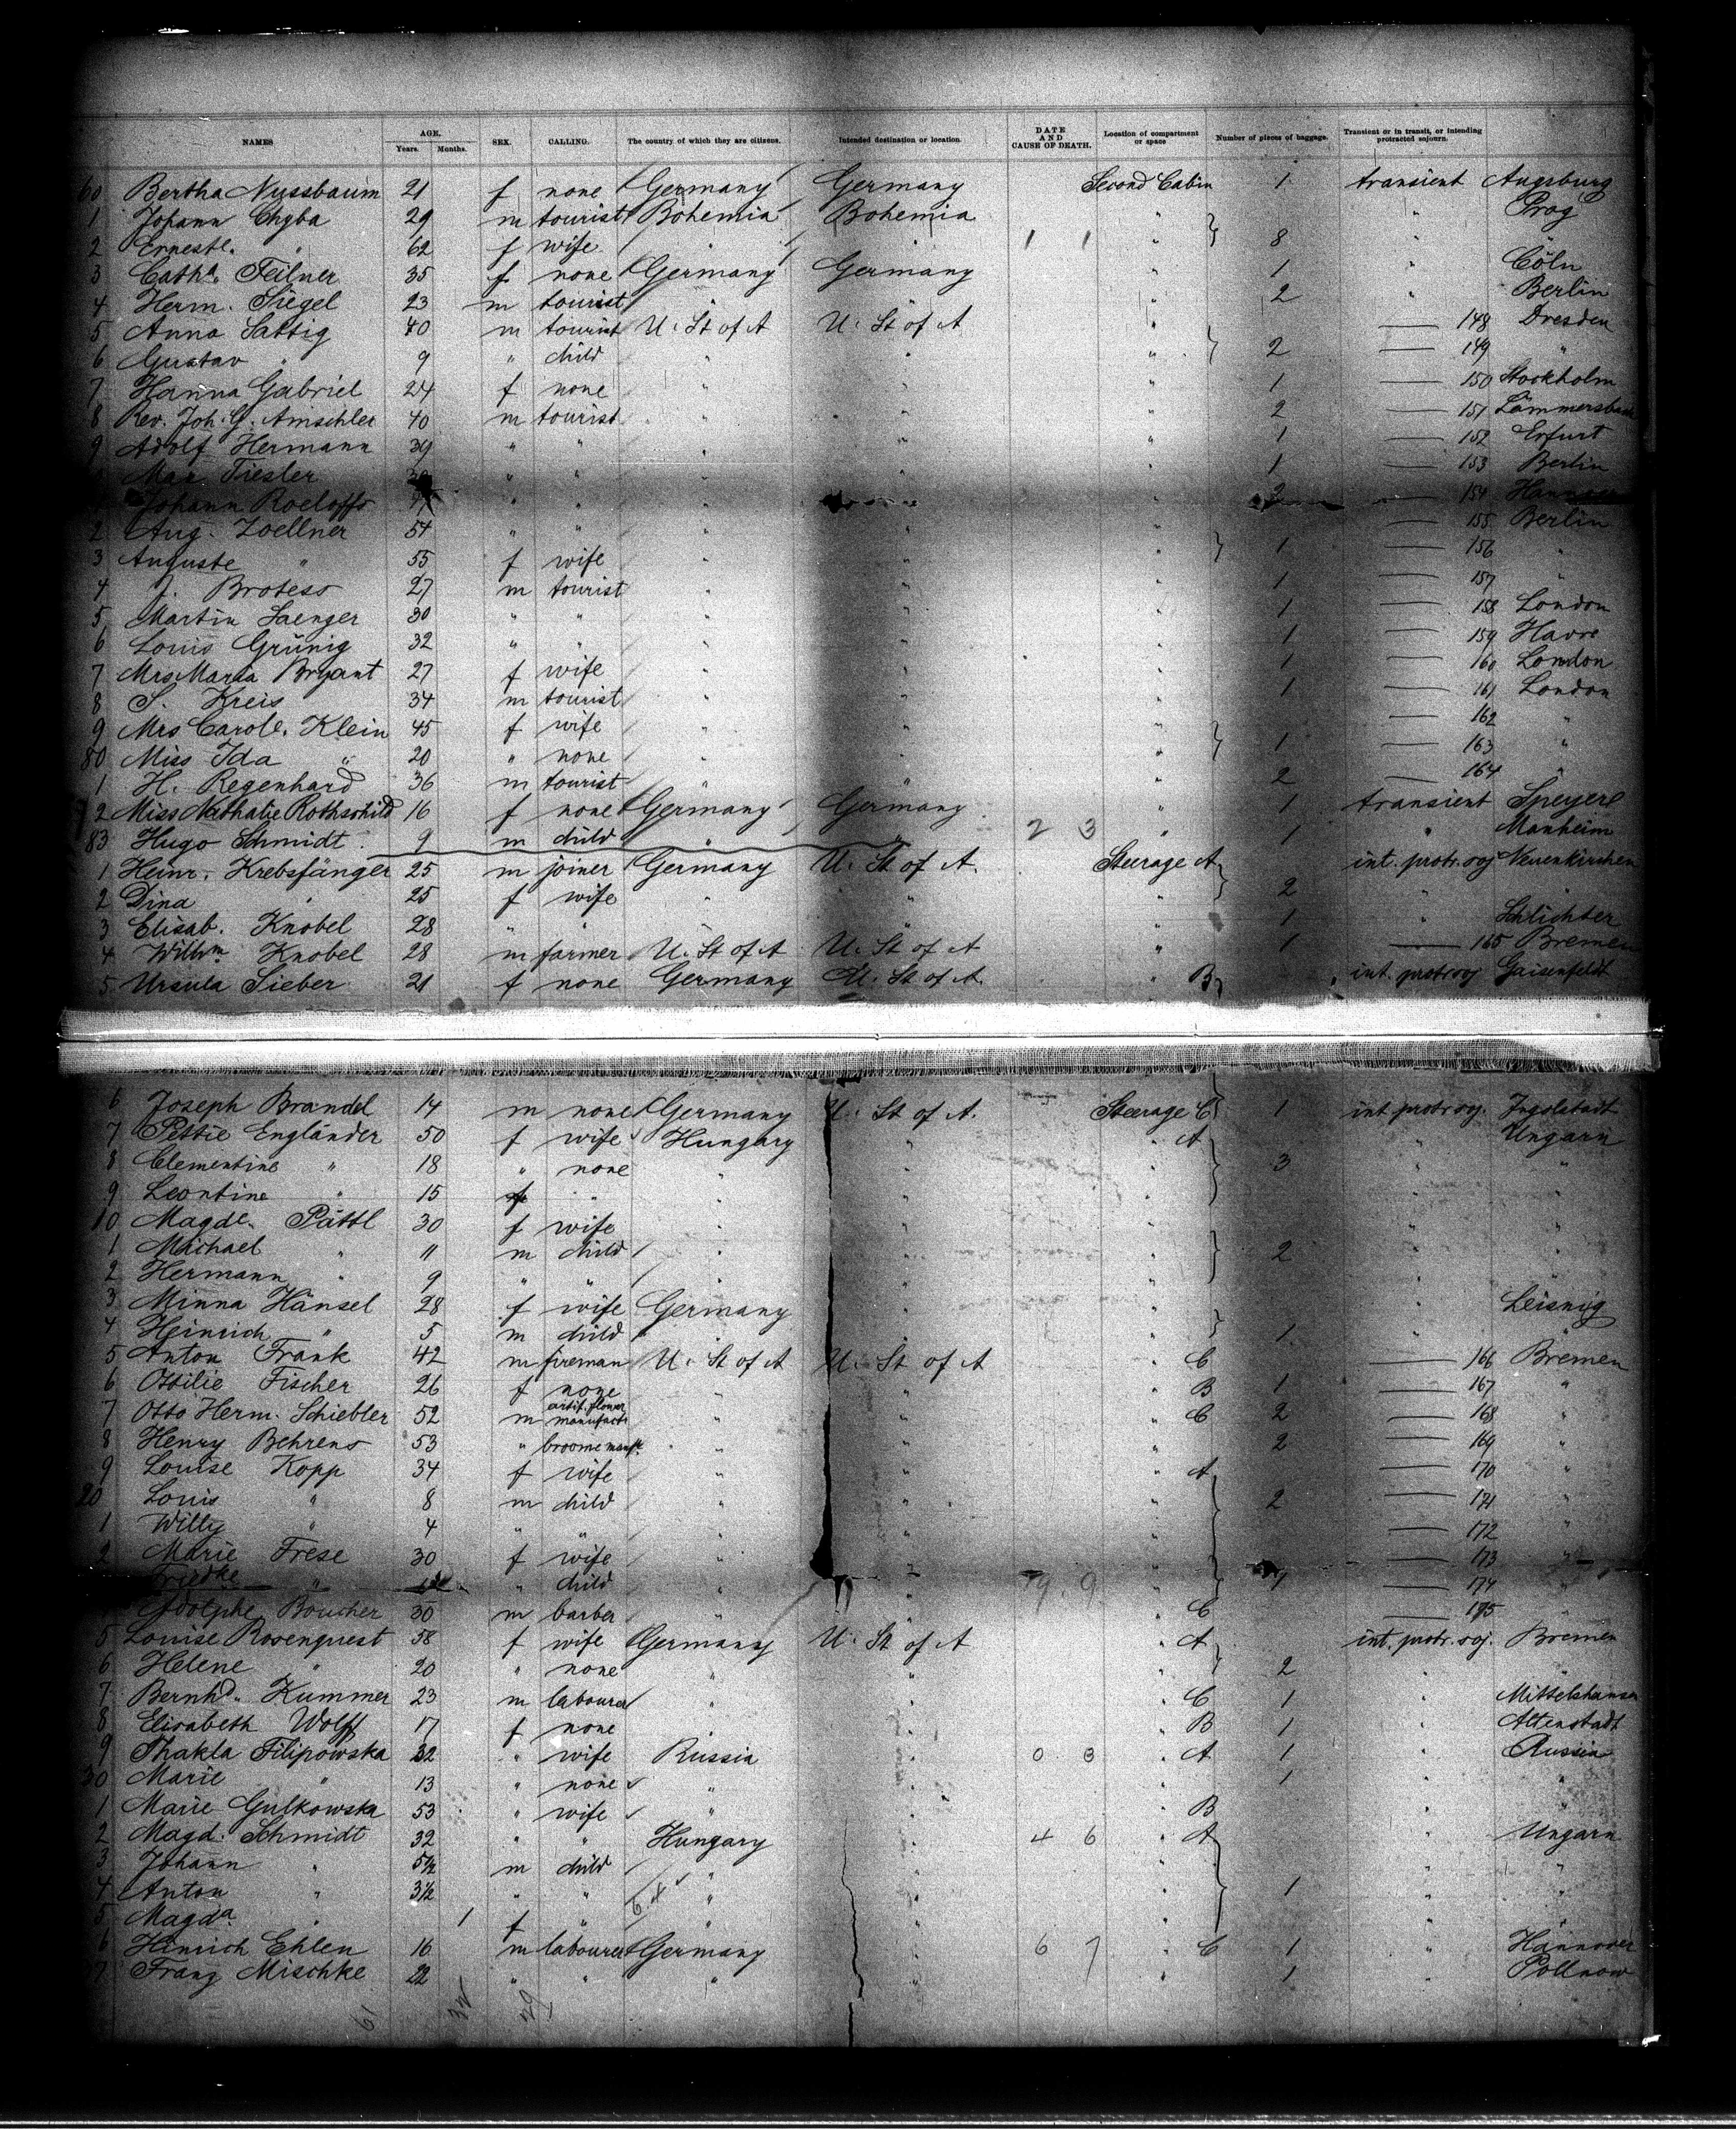 NAMES AGE. Years. Months. SEX. CALLING. The country of which they are citizens. Intended destination or location. DATE AND CAUSE OF DEATH. Location of compartment or space Number of pieces of baggage. Transient or in transit, or intending protracted sojourn.
60 Bertha Nussbaum 21 f none Germany Germany Second Cabin 1 transient Augsburg
1 Johann Chyba 29 m tourist Bohemia Bohemia " " Prag
2 Ernestl. " 62 f wife " " 1 1 " 8 "
3 Catha. Feilner 35 f none Germany Germany " 1 " Cöln
4 Herm. Siegel 23 m tourist " 2 " Berlin
5 Anna Sattig 40 m tourist U. St of A U. St of A " — 148 Dresden
6 Gustav " 9 " child " " " 2 — 149 "
7 Hanna Gabriel 24 f none " " " 1 — 150 Stockholm
8 Rev. Joh. G. Amschler 40 m tourist " " " 2 — 151
9 Adolf Hermann 39 " " " " " 1 — 152 Erfurt
Max Tiesler " " " " " 1 — 153 Berlin
Johann Roeloffs " " " " 2 — 154
2 Aug. Zoellner 54 " " " " " — 155 Berlin
3 Auguste " 55 f wife " " " 1 — 156 "
4 J. Brotess 27 m tourist " " " 1 — 157 "
5 Martin Saenger 30 " " " " " 1 — 158 London
6 Louis Grünig 32 " " " " " 1 — 159 Havre
7 Mrs Maria Bryant 27 f wife " " " 1 — 160 London
8 S. Kreis 34 m tourist " " " 1 — 161 London
9 Mrs Carole. Klein 45 f wife " " " — 162 "
80 Miss Ida " 20 " none " " " 1 — 163 "
1 H. Regenhard 36 m tourist " " " 2 — 164
2 Miss Nathalie Rothschild 16 f none Germany Germany " 1 transient Speyer
83 Hugo Schmidt 9 m child " " 2 3 " 1 " Manheim
1 Heinr. Krebsfänger 25 m joiner Germany U. St of A. Steerage A int. protr. soj Neuenkirchen
2 Dina " 25 f wife " " " 2 "
3 Elisab. Knobel 28 " " " " " 1 " Schlichter
4 Willm Knobel 28 m farmer U. St of A U. St of A " 1 — 165 Bremen
5 Ursula Sieber 21 f none Germany U. St of A. " B int. protr soj Gaisenfeldt
6 Joseph Brandel 14 m none Germany U. St of A. Steerage C 1 int protr soj. Ingolstadt
7 Pettie Engländer 50 f wife Hungary " " A " Ungarn
8 Clementine " 18 " none " " " 3 " "
9 Leontine " 15 f " " " " " "
10 Magde. Pättl 30 f wife " " " " "
1 Michael " 11 m child " " " 2 " "
2 Hermann " 9 " " " " " " "
3 Minna Hänsel 28 f wife Germany " " " Leisnig
4 Heinrich " 5 m child " " " 1 " "
5 Anton Frank 42 m fireman U. St of A U. St of A " C — 166 Bremen
6 Ottilie Fischer 26 f none " " " B 1 — 167 "
7 Otto Herm. Schiebler 52 m artif. flower manufactr " " " C 2 — 168 "
8 Henry Behrens 53 " broome manft. " " " 2 — 169 "
9 Louise Kopp 34 f wife " " " A — 170 "
20 Louis " 8 m child " " " 2 — 171 "
1 Willy " 4 " " " " " — 172 "
2 Marie Frese 30 f wife " " " — 173 "
Friedke " " child " " 9 9 " 1 — 174 "
Adolphe Boucher 30 m barber " " " C — 175
5 Louise Rosenquest 58 f wife Germany U. St of A " A int. protr. soj. Bremen
6 Helene " 20 " none " " " 2 " "
7 Bernhd. Kummer 23 m labourer " " " C 1 "
8 Elisabeth Wolff 17 f none " " " B 1 " Altenstadt
9 Thakla Filipowska 32 " wife Russia " 0 3 " A 1 " Russia
30 Marie " 13 " none " " " 1 " "
1 Marie Gulkowska 53 " wife " " B " "
2 Magd. Schmidt 32 " " Hungary " 4 6 " A " Ungarn
3 Johann " 5½ m child " " " " "
4 Anton " 3½ " " " " " 1 " "
5 Magda. " 1 f " " " " " "
6 Hinrich Ehlen 16 m labourer Germany " 6 7 " C 1 " Hannover
37 Franz Mischke 22 " " " " " 1 " Pollnow
61